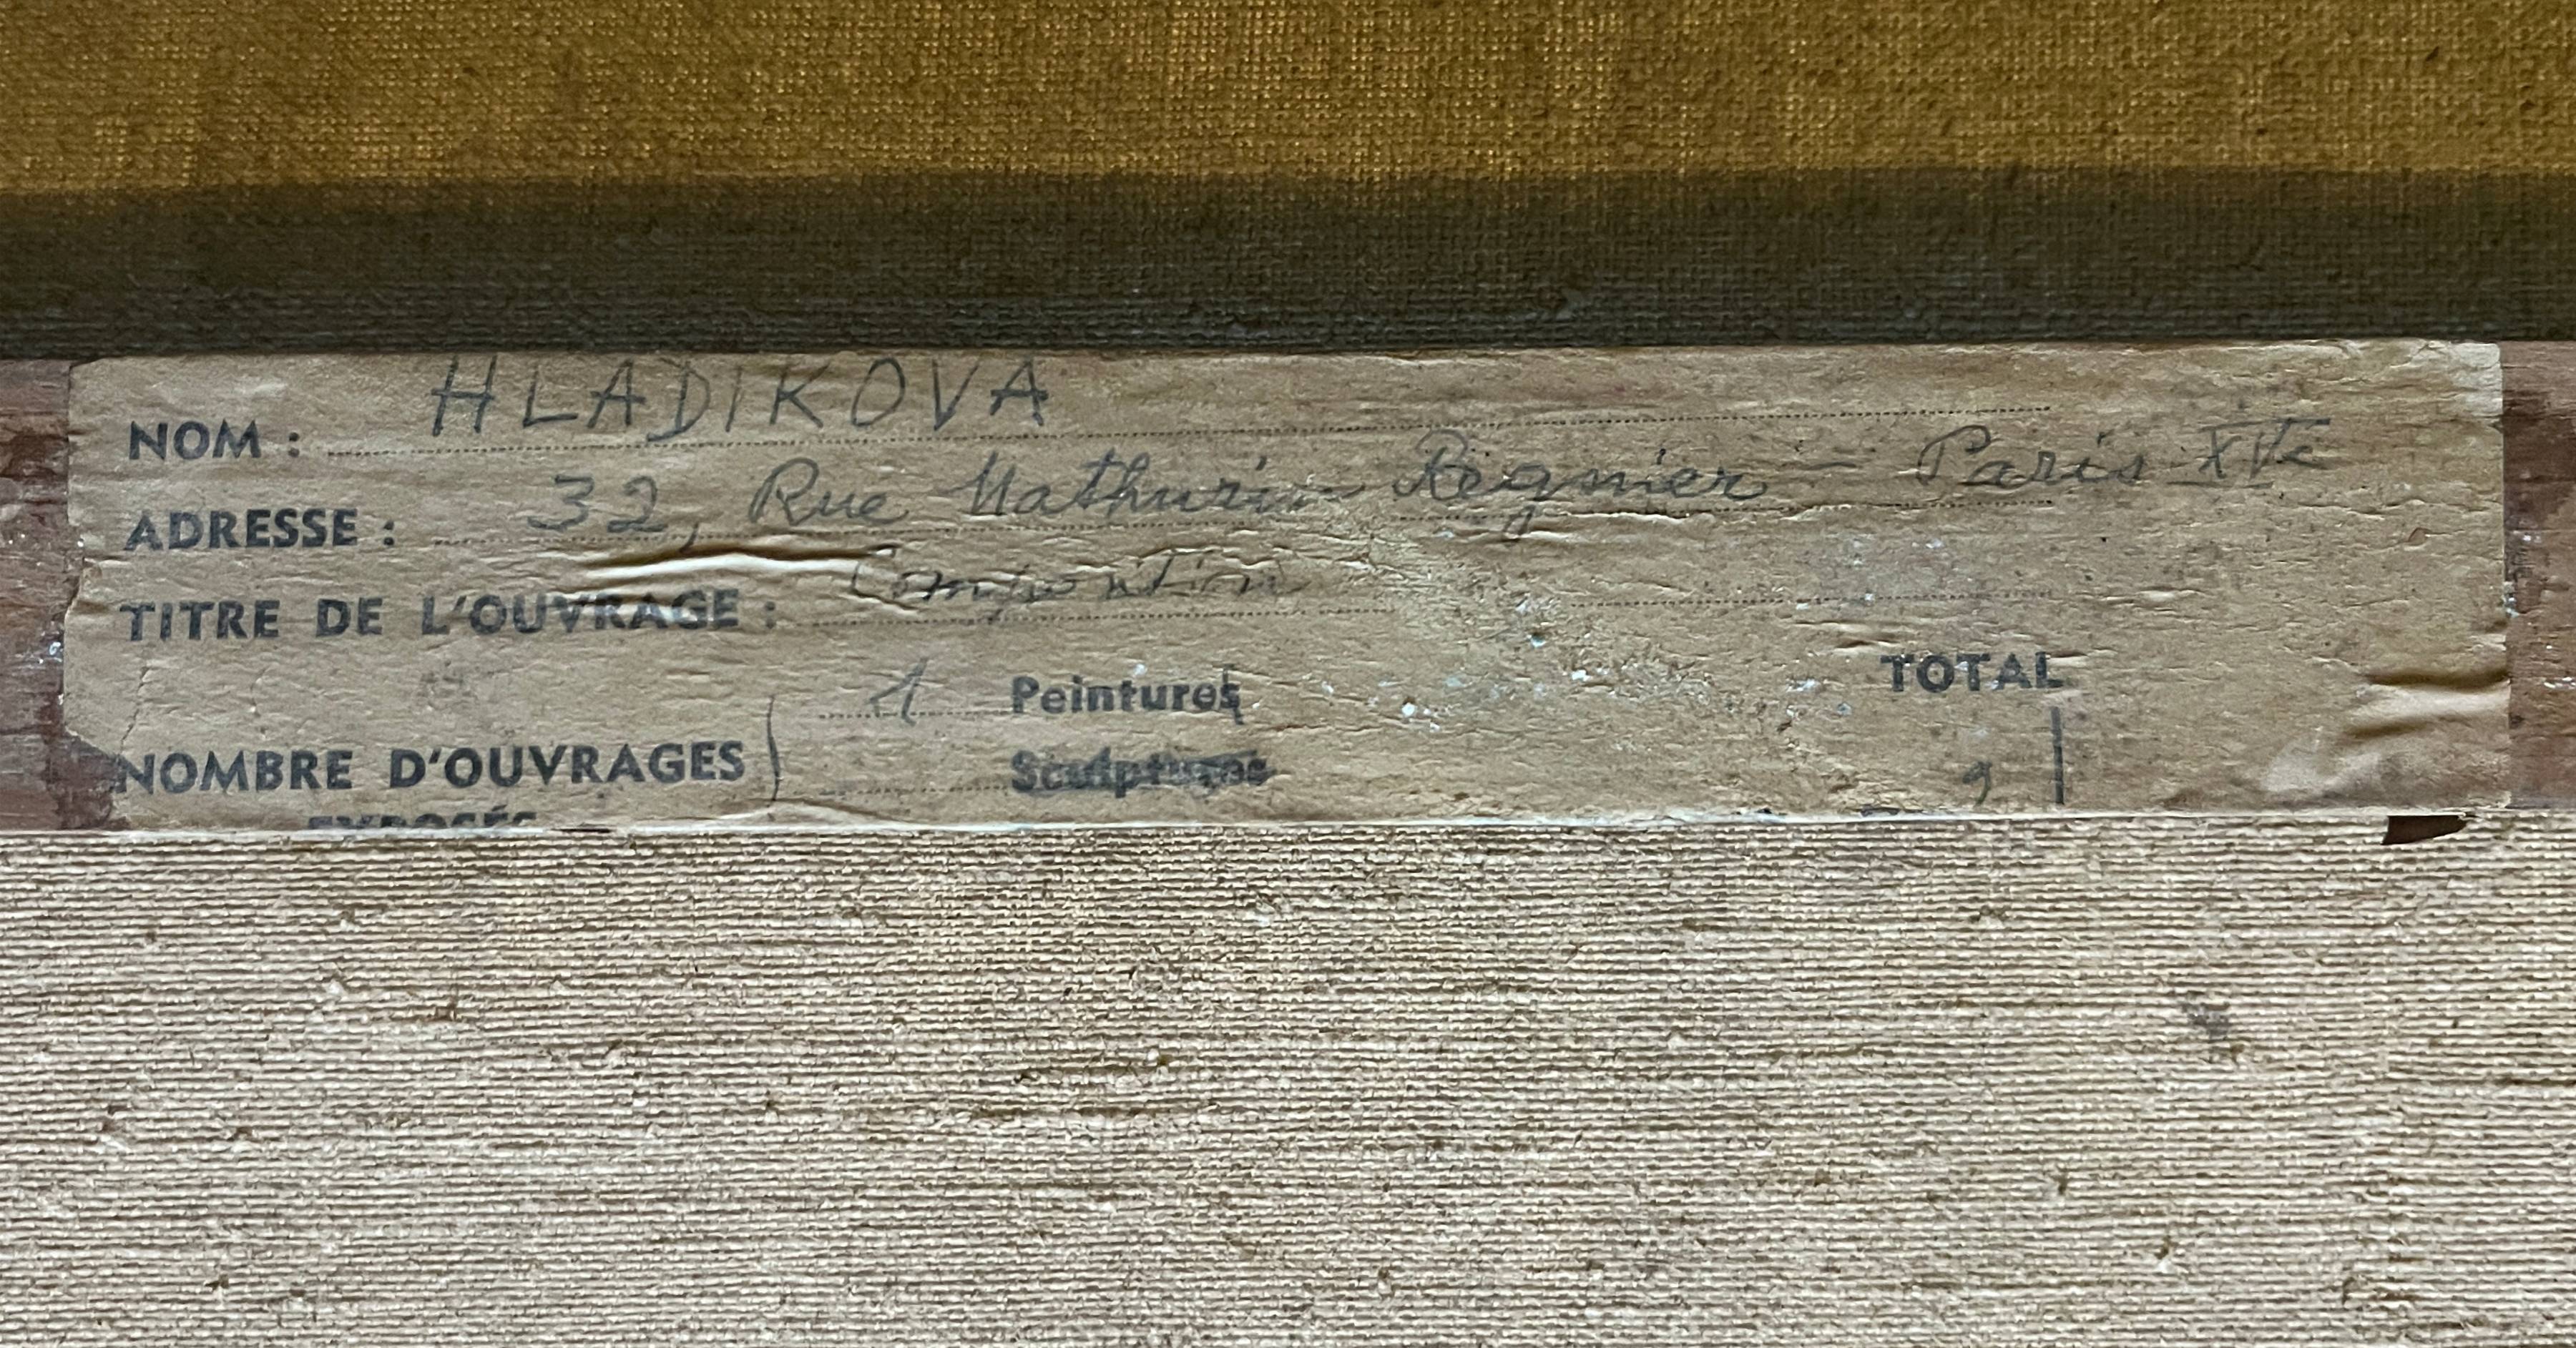 NOM : HLADIKOVA
ADRESSE : 32, Rue Mathurin Regnier - Paris XVe
TITRE DE L'OUVRAGE : Composition
1 Peintures
TOTAL
NOMBRE D'OUVRAGES
Sculptures
EXPOSÉS